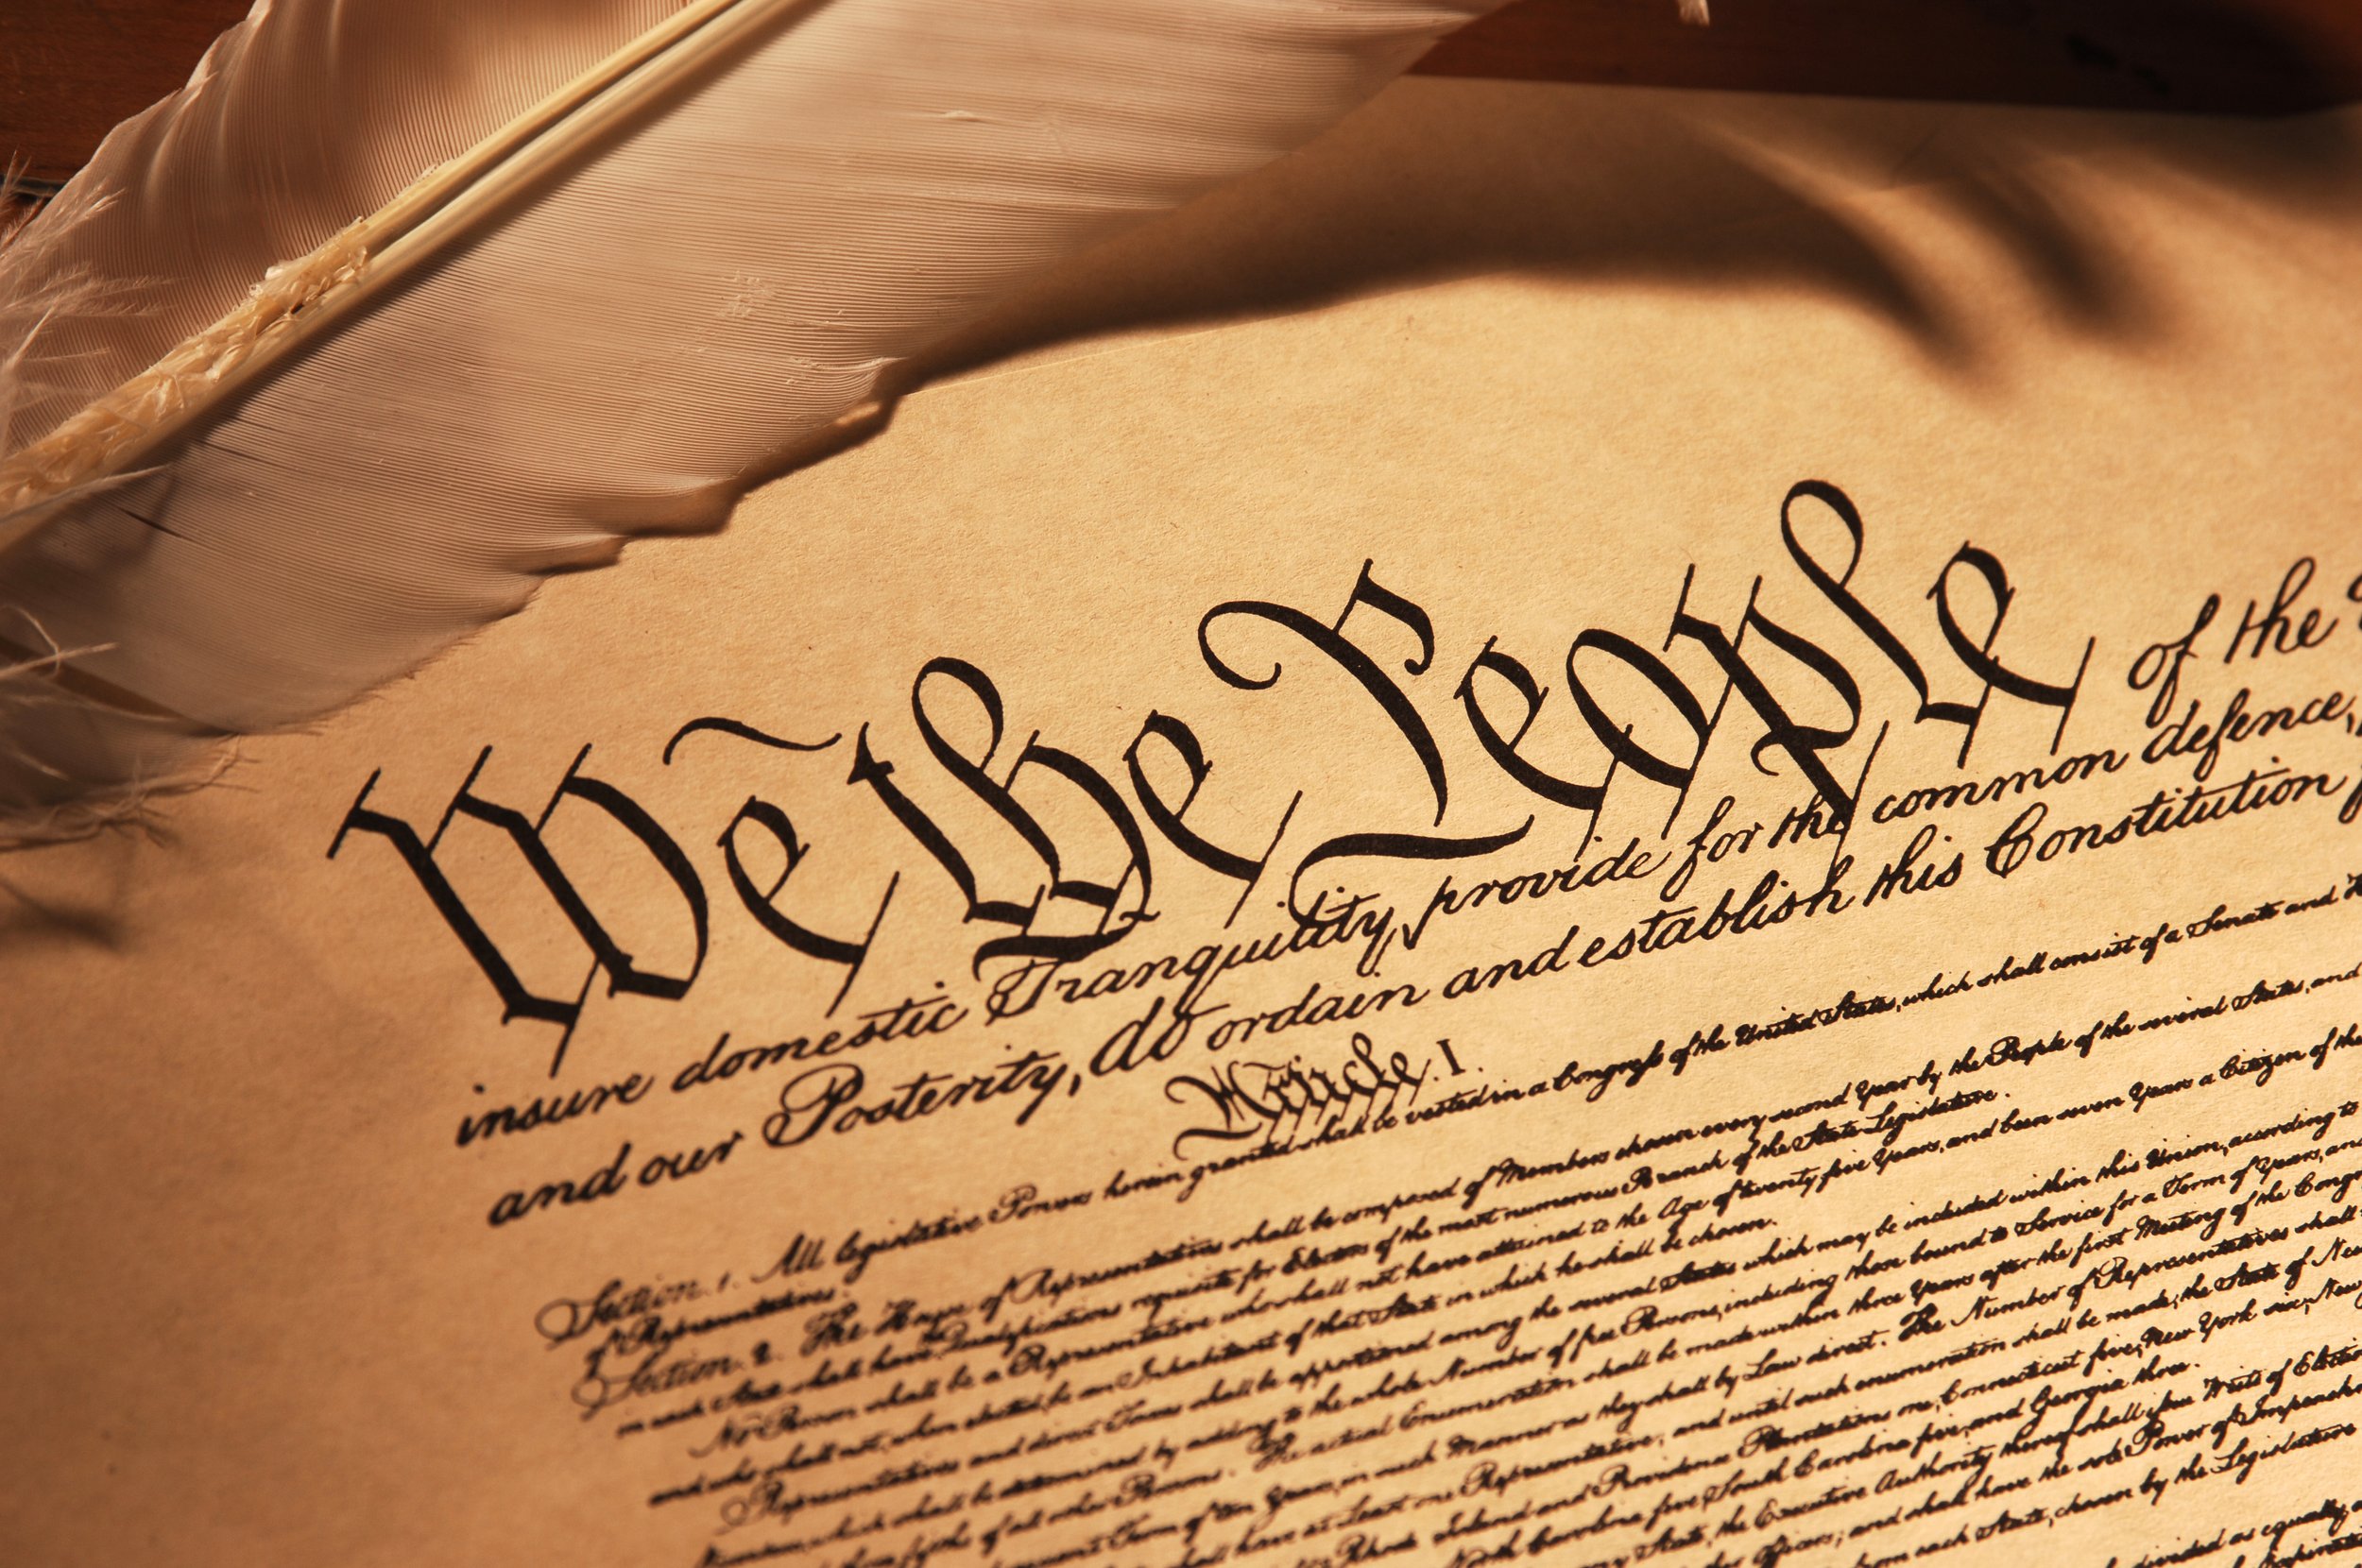 We the People of the
insure domestic Tranquility, provide for the common defence,
and our Posterity, do ordain and establish this Constitution
Article. I.
Section. 1. All legislative Powers herein granted shall be vested in a Congress of the United States, which shall consist of a Senate and
of Representatives.
Section. 2. The House of Representatives shall be composed of Members chosen every second Year by the People of the several States, and
in each State shall have Qualifications requisite for Electors of the most numerous Branch of the State Legislature.
No Person shall be a Representative who shall not have attained to the Age of twenty five Years, and been seven Years a Citizen of the
and who shall not, when elected, be an Inhabitant of that State in which he shall be chosen.
Representatives and direct Taxes shall be apportioned among the several States which may be included within this Union, according to
Numbers, which shall be determined by adding to the whole Number of free Persons, including those bound to Service for a Term of Years, and
of all other Persons. The actual Enumeration shall be made within three Years after the first Meeting of the
Term of ten Years, in such Manner as they shall by Law direct. The Number of Representatives shall
shall have at Least one Representative; and until such enumeration shall be made, the State of
Rhode Island and Providence Plantations one, Connecticut five, New York six, New
North Carolina five, South Carolina five, and Georgia three.
State, the Executive Authority thereof shall issue Writs of
Officers; and shall have the sole Power of
from each State, chosen by the Legislature
divided as equally